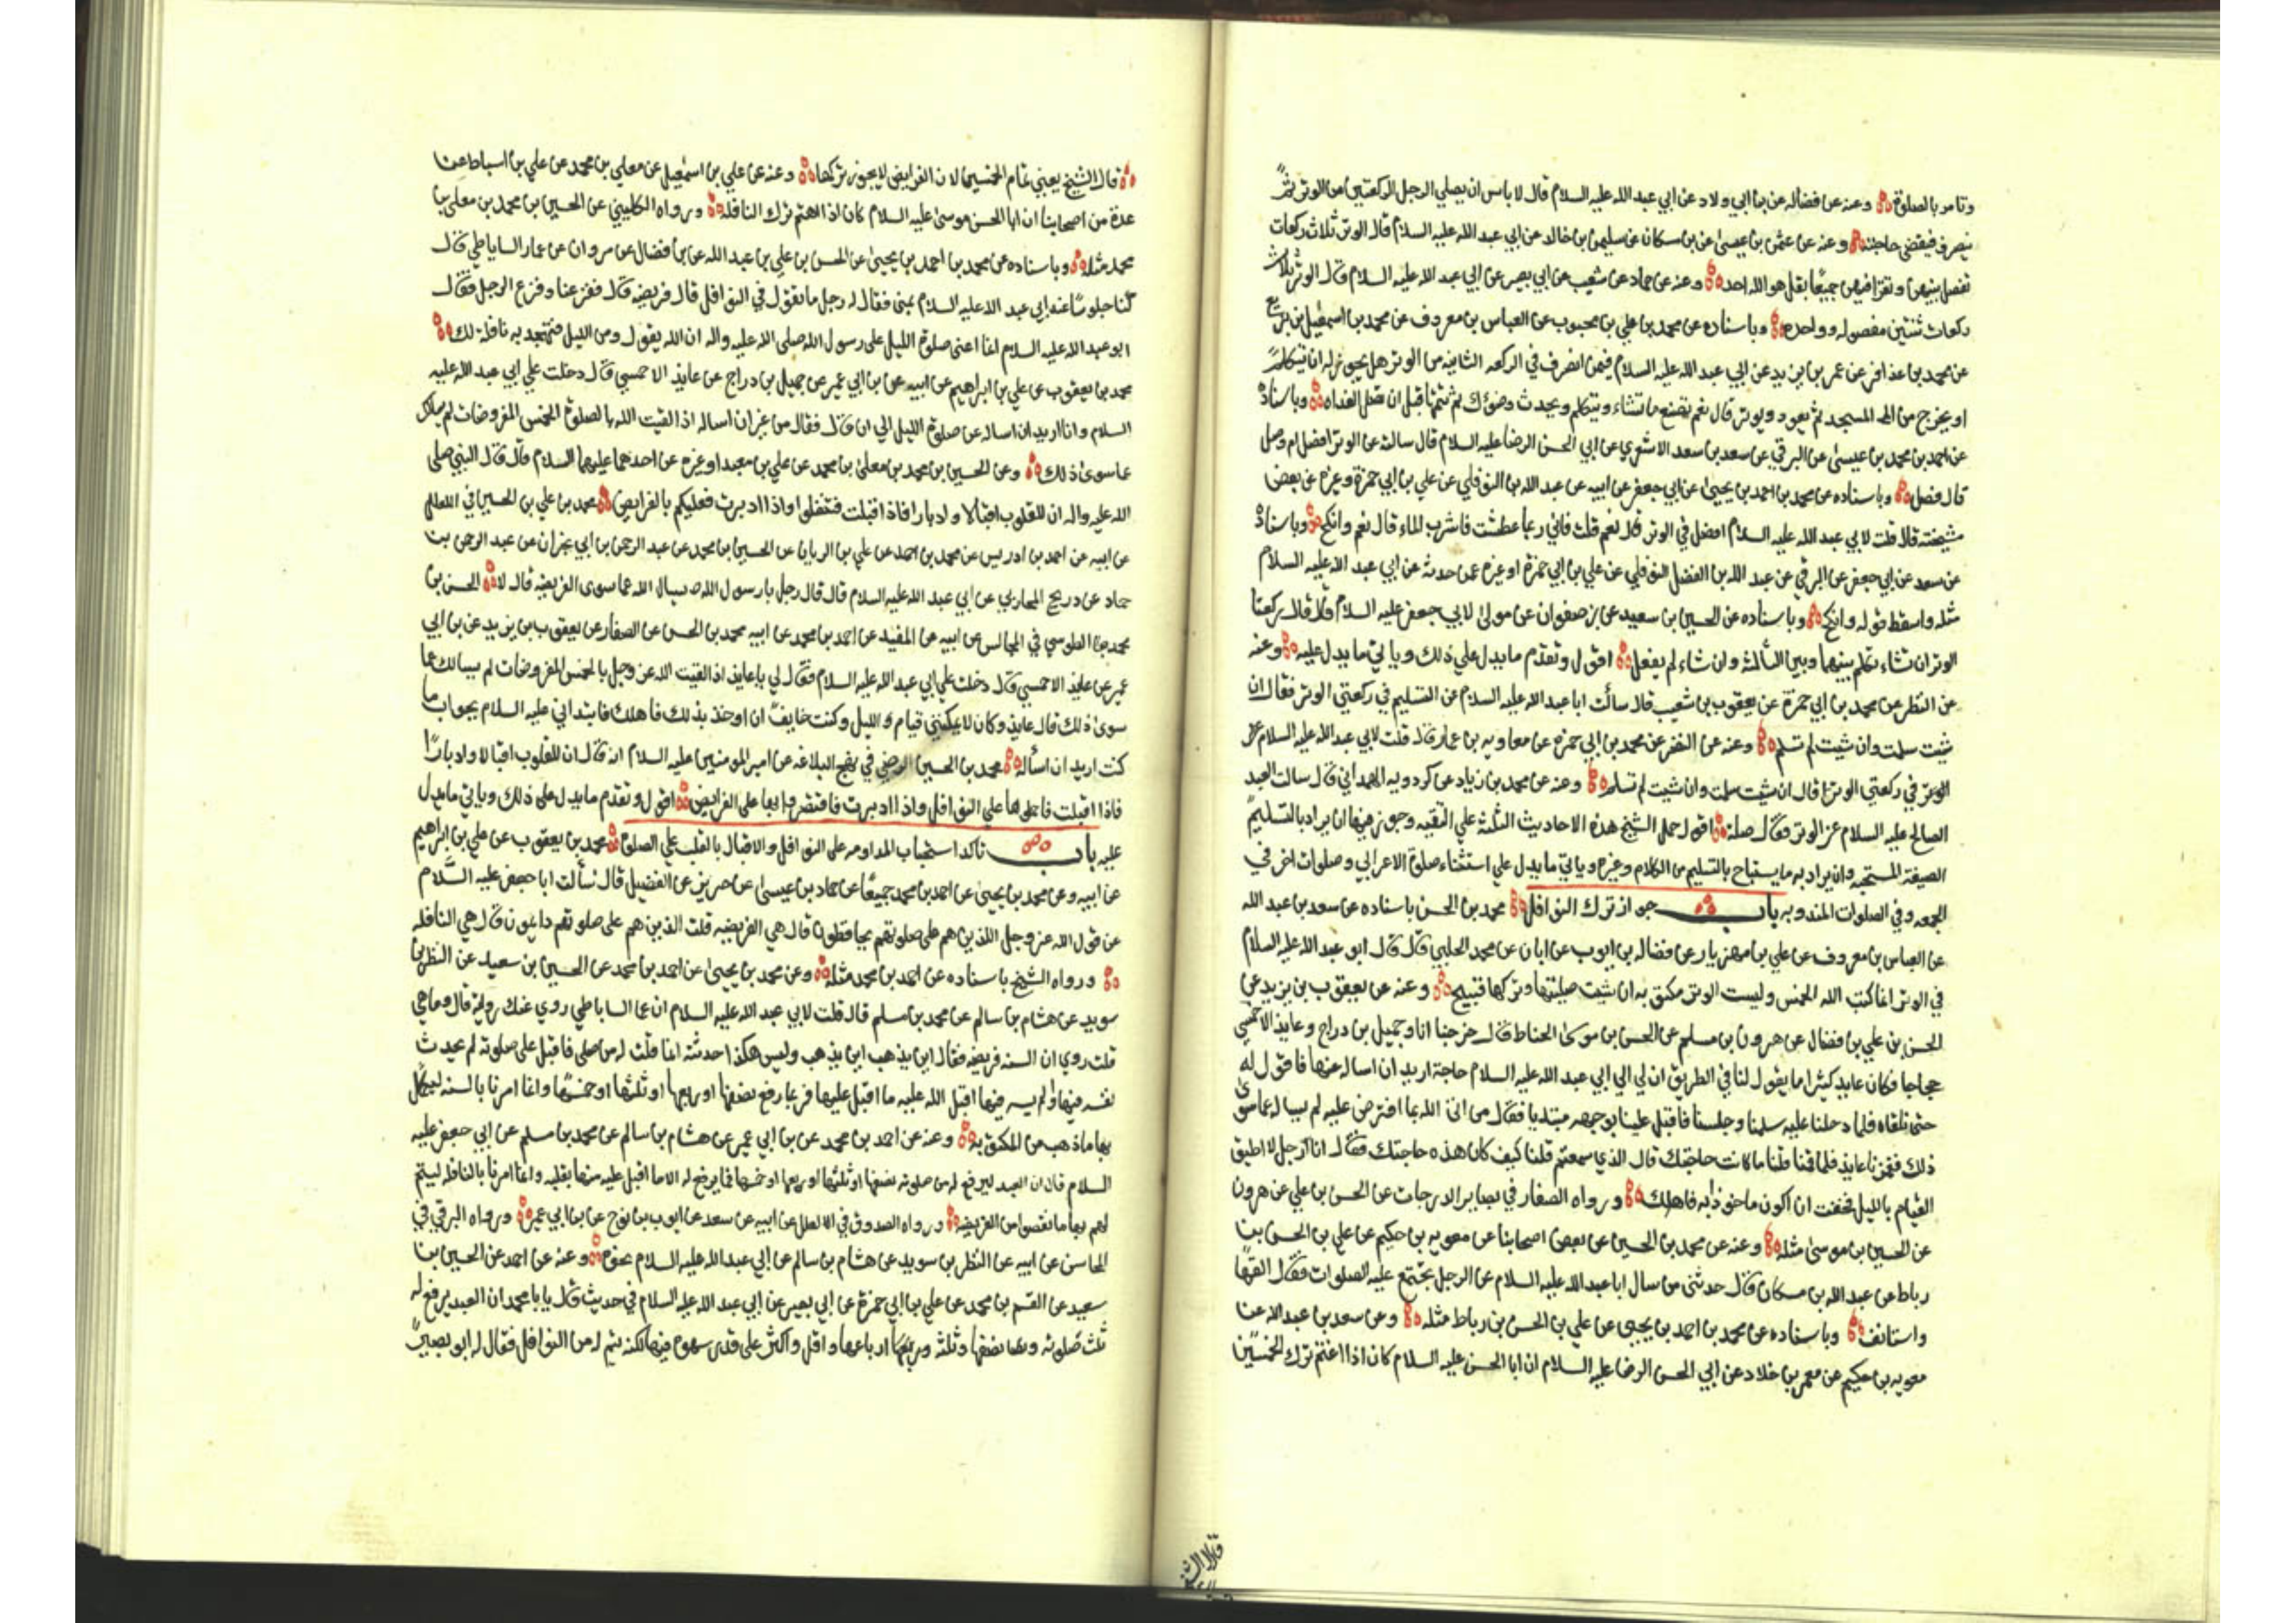 وتامر بالصلوة وعنه عن فضاله عن بن ابي ولاد عن ابي عبد الله عليه السلام قال لا باس ان يصلي الرجل الركعتين من الوتر ثم
ينصرف فيقضي حاجته وعنه عن عثمن بن عيسى عن بن مسكان عن سليمن بن خالد عن ابي عبد الله عليه السلام قال الوتر ثلاث ركعات
تفصل بينهن وتقرا فيهن جميعًا بقل هو الله احد وعنه عن حماد عن شعيب عن ابي بصير عن ابي عبد الله عليه السلام قال الوتر ثلاث
ركعات ثنتين مفصوله وواحده وباسناده عن محمد بن علي بن محبوب عن العباس بن معروف عن محمد بن اسمعيل بن بزيع
عن محمد بن عذافر عن عمر بن يزيد عن ابي عبد الله عليه السلام فيمن انصرف في الركعه الثانيه من الوتر هل يجوز له ان يتكلم
او يخرج من المسجد ثم يعود ويوتر قال نعم تصنع ما تشاء وتتكلم وتحدث وضؤك ثم تتمها قبل ان تصلي الغداه وباسناده
عن احمد بن محمد بن عيسى عن البرقي عن سعد بن سعد الاشعري عن ابي الحسن الرضا عليه السلام قال سالته عن الوتر افصل ام وصل
قال فصل وباسناده عن محمد بن احمد بن يحيى عن ابي جعفر عن ابيه عن عبد الله بن النوفلي عن علي بن ابي حمزة وغيره عن بعض
مشيخته قال قلت لابي عبد الله عليه السلام افصل في الوتر قال نعم قلت فاني ربما عطشت فاشرب الماء قال نعم وانكح وباسناده
عن سعد عن ابي جعفر عن البرقي عن عبد الله بن الفضل النوفلي عن علي بن ابي حمزة او غيره عمن حدثه عن ابي عبد الله عليه السلام
مثله واسقط قوله وانكح وباسناده عن الحسين بن سعيد عن صفوان عن مولى لابي جعفر عليه السلام قال قال ركعتا
الوتر ان شاء تكلم بينهما وبين الثالثة وان شاء لم يفعل اقول وتقدم ما يدل علي ذلك وياتي ما يدل عليه وعنه
عن النضر عن محمد بن ابي حمزة عن يعقوب بن شعيب قال سالت ابا عبد الله عليه السلام عن التسليم في ركعتي الوتر فقال ان
شيت سلمت وان شيت لم تسلم وعنه عن النضر عن محمد بن ابي حمزه عن معاويه بن عمار قال قلت لابي عبد الله عليه السلام
الوتر في ركعتي الوتر قال ان شيت سلمت وان شيت لم تسلم وعنه عن محمد بن زياد عن كردويه الهمداني قال سالت العبد
الصالح عليه السلام عن الوتر فقال صله اقول حمل الشيخ هذه الاحاديث الثلثة علي التقيه وجوز فيها ان يراد بالتسليم
الصيغة المستحبه وان يراد به ما يستباح بالتسليم من الكلام وغيره وياتي ما يدل علي استثناء صلوة الاعرابي وصلوات اخر في
الجمعه وفي الصلوات المندوبه باب جواز ترك النوافل محمد بن الحسن باسناده عن سعد بن عبد الله
عن العباس بن معروف عن علي بن مهزيار عن فضاله بن ايوب عن ابان عن محمد الحلبي قال قال ابو عبد الله عليه السلام
في الوتر انما كتب الله الخمس وليست الوتر مكتوبه ان شيت صليتها وتركها قبيح وعنه عن يعقوب بن يزيد عن
الحسن بن علي بن فضال عن هرون بن مسلم عن الحسن بن موسى الحناط قال خرجنا انا وجميل بن دراج وعايذ الاحمسي
حجاجا فكان عايذ كثيرا ما يقول لنا في الطريق ان لي الي ابي عبد الله عليه السلام حاجة اريد ان اساله عنها فاقول له
حتى نلقاه فلما دخلنا عليه سلمنا وجلسنا فاقبل علينا بوجهه مبتديا فقال من اتى الله بما افترض عليه لم يساله عما سوى
ذلك فغمزنا عايذ فلما قمنا قلنا ما كانت حاجتك قال الذي سمعتم قلنا كيف كان هذه حاجتك فقال انا رجل لا اطيق
القيام بالليل فخفت ان اكون ماخوذا به فاهلك ورواه الصفار في بصاير الدرجات عن الحسن بن علي عن هرون
عن الحسين بن موسى مثله وعنه عن محمد بن الحسين عن بعض اصحابنا عن معويه بن حكيم عن علي بن الحسن بن
رباط عن عبد الله بن مسكان قال حدثني من سال ابا عبد الله عليه السلام عن الرجل يجتمع عليه الصلوات فقال القها
واستانف وباسناده عن محمد بن احمد بن يحيى عن علي بن الحسن بن رباط مثله وعن سعد بن عبد الله عن
معويه بن حكيم عن معمر بن خلاد عن ابي الحسن الرضا عليه السلام ان ابا الحسن عليه السلام كان اذا اغتم ترك الخمسين
قال الشيخ
قال الشيخ يعني تمام الخمسين لان الفرايض لا يجوز تركها وعنه عن علي بن اسمعيل عن معلى بن محمد عن علي بن اسباط عن
عدة من اصحابنا ان ابا الحسن موسى عليه السلام كان اذا اهتم ترك النافله ورواه الكليني عن الحسين بن محمد بن معلى بن
محمد مثله وباسناده عن محمد بن احمد بن يحيى عن الحسن بن علي بن عبد الله عن بن فضال عن مروان عن عمار الساباطي قال
كنا جلوسًا عند ابي عبد الله عليه السلام بمنى فقال له رجل ما تقول في النوافل قال فريضه قال ففزعنا وفزع الرجل فقال
ابو عبد الله عليه السلام انما اعنى صلوة الليل على رسول الله صلى الله عليه واله ان الله يقول ومن الليل فتهجد به نافلة لك
محمد بن يعقوب عن علي بن ابراهيم عن ابيه عن بن ابي عمير عن جميل بن دراج عن عايذ الاحمسي قال دخلت علي ابي عبد الله عليه
السلام وانا اريد ان اساله عن صلوة الليل الي ان قال فقال من غير ان اساله اذا لقيت الله بالصلوة الخمس المفروضات لم يسالك
عما سوى ذلك وعن الحسين بن محمد بن معلى بن محمد عن علي بن معبد او غيره عن احدهما عليهما السلام قال قال النبي صلى
الله عليه واله ان للقلوب اقبالا وادبارا فاذا اقبلت فتنفلوا واذا ادبرت فعليكم بالفرايض محمد بن علي بن الحسين في العلل
عن ابيه عن احمد بن ادريس عن محمد بن احمد عن علي بن الريان عن الحسين بن محمد عن عبد الرحمن بن ابي نجران عن عبد الرحمن بن
حماد عن ذريح المحاربي عن ابي عبد الله عليه السلام قال قال رجل يا رسول الله يسال الله عما سوى الفريضه قال لا الحسن بن
محمد بن الطوسي في المجالس عن ابيه عن المفيد عن احمد بن محمد عن ابيه محمد بن الحسن عن الصفار عن يعقوب بن يزيد عن بن ابي
عمير عن عايذ الاحمسي قال دخلت علي ابي عبد الله عليه السلام فقال لي يا عايذ اذا لقيت الله عز وجل بالخمس المفروضات لم يسالك عما
سوى ذلك قال عايذ وكان لا يمكنني قيام الليل وكنت خايفا ان اوخذ بذلك فاهلك فابتداني عليه السلام بجواب ما
كنت اريد ان اسأله محمد بن الحسين الرضي في نهج البلاغه عن امير المومنين عليه السلام انه قال ان للقلوب اقبالا وادبارًا
فاذا اقبلت فاحملوها علي النوافل واذا ادبرت فاقتصروا بها على الفرايض اقول وتقدم ما يدل على ذلك وياتي ما يدل
عليه باب تاكد استحباب المداومه على النوافل والاقبال بالقلب علي الصلوة محمد بن يعقوب عن علي بن ابراهيم
عن ابيه وعن محمد بن يحيى عن احمد بن محمد جميعًا عن حماد بن عيسى عن حريز عن الفضيل قال سألت ابا جعفر عليه السلام
عن قول الله عز وجل الذين هم على صلوتهم يحافظون قال هي الفريضه قلت الذين هم على صلوتهم دايمون قال هي النافله
ورواه الشيخ باسناده عن احمد بن محمد مثله وعن محمد بن يحيى عن احمد بن محمد عن الحسين بن سعيد عن النظر بن
سويد عن هشام بن سالم عن محمد بن مسلم قال قلت لابي عبد الله عليه السلام ان عمار الساباطي روي عنك رواية قال وما هي
قلت روي ان السنه فريضه فقال اين يذهب اين يذهب وليس هكذا حدثته انما قلت له من صلى فاقبل على صلوته لم يحدث
نفسه فيها ولم يسه فيها اقبل الله عليه ما اقبل عليها فربما رفع نصفها او ربعها او ثلثها او خمسها وانما امرنا بالسنه ليكمل
بها ما ذهب من المكتوبه وعنه عن احمد بن محمد عن بن ابي عمير عن هشام بن سالم عن محمد بن مسلم عن ابي جعفر عليه
السلام قال ان العبد ليرفع له من صلوته نصفها او ثلثها او ربعها او خمسها فما يرفع له الا ما اقبل عليه منها بقلبه وانما امرنا بالنافله ليتم
لهم بها ما نقصوا من الفريضه ورواه الصدوق في العلل عن ابيه عن سعد عن ايوب بن نوح عن بن ابي عمير ورواه البرقي في
المحاسن عن ابيه عن النظر بن سويد عن هشام بن سالم عن ابي عبد الله عليه السلام نحوه وعنه عن احمد عن الحسين بن
سعيد عن القسم بن محمد عن علي بن ابي حمزة عن ابي بصير عن ابي عبد الله عليه السلام في حديث قال يا با محمد ان العبد يرفع له
ثلث صلوته ونصفها وثلثه وربعها ارباعها واقل واكثر على قدر سهوه فيها لكنه يتم له من النوافل فقال له ابو بصير